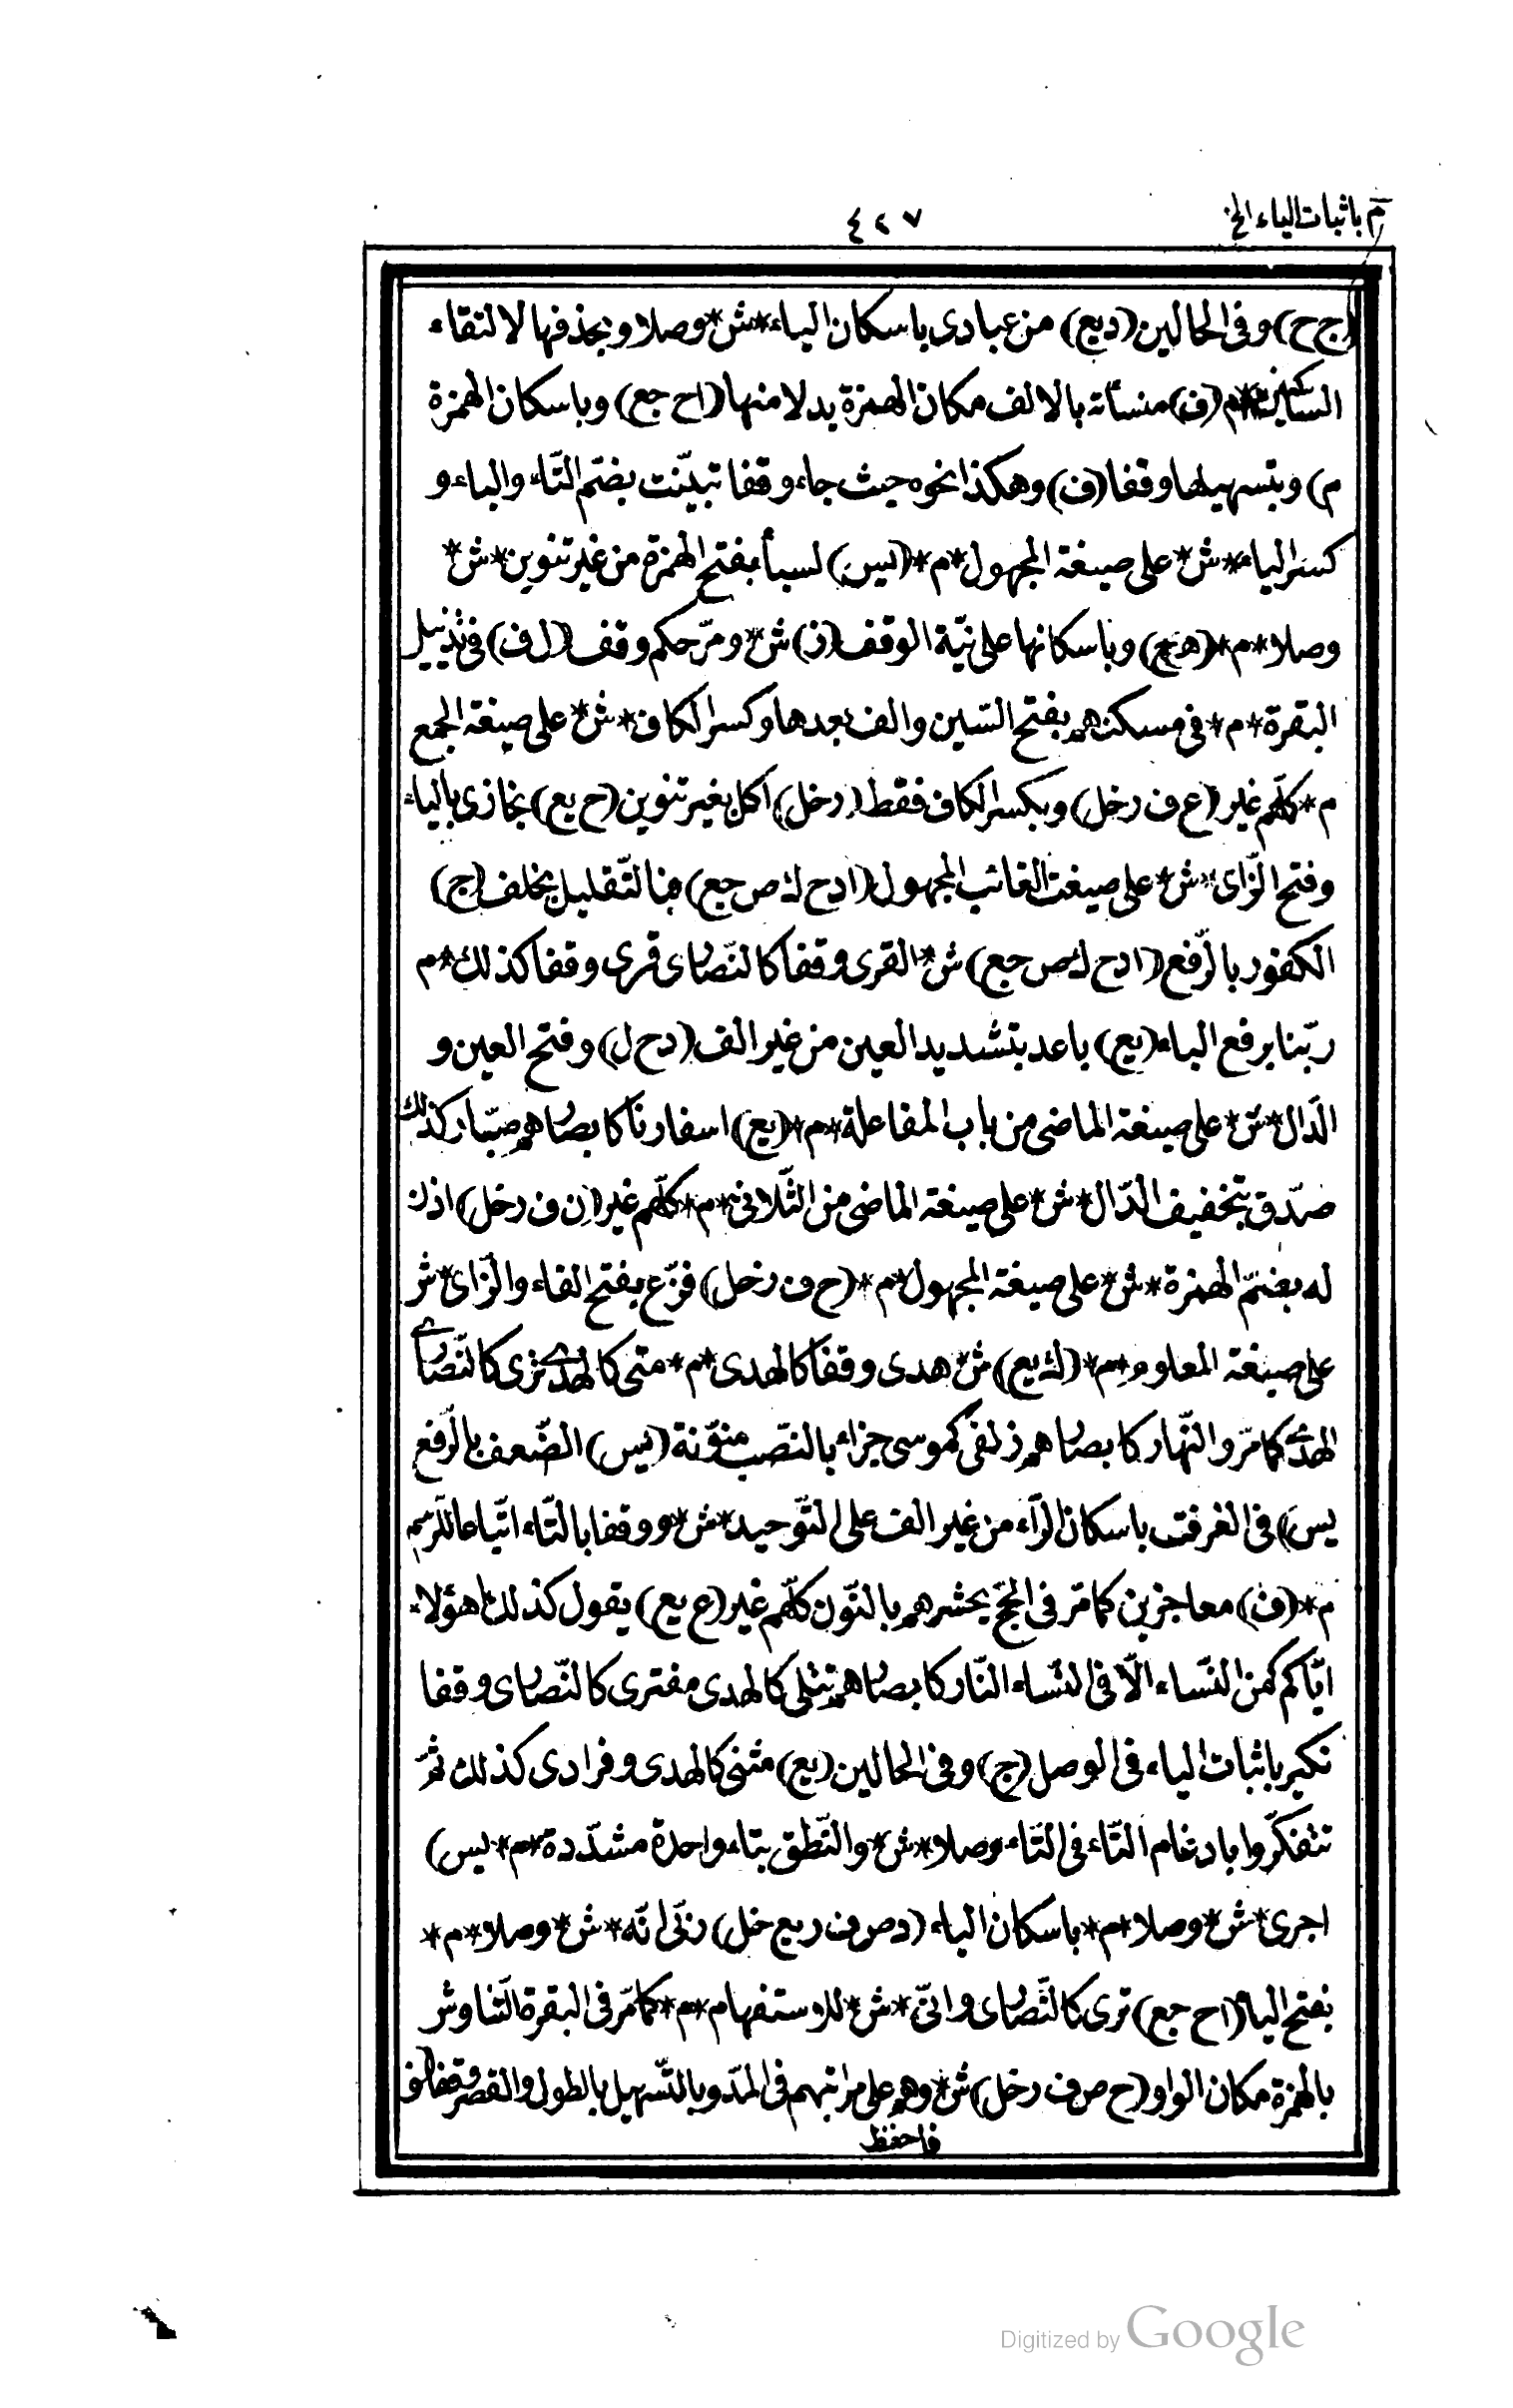 م باثبات الياء الخ
٤٢٧
(ج ح) وفى الحالين (د يع) من عبادى باسكان الياء * ش * وصلا وبحذفها لالتقاء
الساكنين * م (ف) منسأته بالالف مكان الهمزة بدلا منها (ا ح جع) وباسكان الهمزة
م) وبتسهيلها وقفا (ف) وهكذا نحوه حيث جاء وقفا تبيّنت بضمّ التّاء والباء و
كسر الياء * ش * على صيغة المجهول * م * (يس) لسبأ بفتح الهمزة من غير تنوين * ش *
وصلا * م * (ه ح) وباسكانها على نيّة الوقف (ز) ش * ومرّ حكم وقف (ل ف) فى تذييل
البقرة * م * فى مسكنهم بفتح السّين والف بعدها وكسر الكاف * ش * على صيغة الجمع
م * كلّهم غير (ع ف ر خل) وبكسر الكاف فقط (ر خل) اكل بغير تنوين (ح يع) نجازى بالياء
وفتح الزّاى * ش * على صيغة الغائب المجهول (ا د ح ك ص جع) هنا لتّقليل بخلف (ج)
الكفور بالرّفع (ا د ح ك ص جع) ش * القرى وقفا كالنّصارى قرى وقفا كذلك * م
ربّنا برفع الباء (يع) باعد بتشديد العين من غير الف (د ح ل) وفتح العين و
الدّال * ش * على صيغة الماضى من باب المفاعلة * م * (يع) اسفارنا كابصارهم صبّار كذلك
صدّق بتخفيف الدّال * ش * على صيغة الماضى من الثّلاثى * م * كلّهم غير (ن ف ر خل) اذن
له بضمّ الهمزة * ش * على صيغة المجهول * م * (ح ف ر خل) فزّع بفتح الفاء والزّاى * ش
على صيغة المعلوم * م * (ك يع) ش * هدى وقفا كالهدى * م * متى كالهدى ترى كالنّصارى
الهدى كما مرّ والنّهار كابصارهم زلفى كموسى جزاء بالنّصب منوّنة (يس) الضّعف بالرّفع
يس) فى الغرفت باسكان الرّاء من غير الف على التّوحيد * ش * ووقفا بالتّاء اتّباعا للرّسم
م * (ف) معاجزين كما مرّ فى الحجّ يحشرهم بالنّون كلّهم غير (ع يع) يقول كذلك اهؤلاء
ايّاكم كمن النّساء الّا فى النّساء النّار كابصارهم تتلى كالهدى مفترى كالنّصارى وقفا
نكير باثبات الياء فى الوصل (ج) وفى الحالين (يع) مثنى كالهدى وفرادى كذلك ثمّ
تتفكّروا بادغام التّاء فى التّاء وصلا * ش * والنّطق بتاء واحدة مشدّدة * م * يس)
اجرى * ش * وصلا * م * باسكان الياء (د ص ف ر يع خل) ربّى انّه * ش * وصلا * م *
بفتح الياء (ا ح جع) ترى كالنّصارى وانّى * ش * للاستفهام * م * كما مرّ فى البقرة التّناوش
بالهمزة مكان الواو (ح ص ف ر خل) ش * وهم على مراتبهم فى المدّ وبالتّسهيل بالطول والقصر وقفا (ف
فاحفظ
Digitized by Google